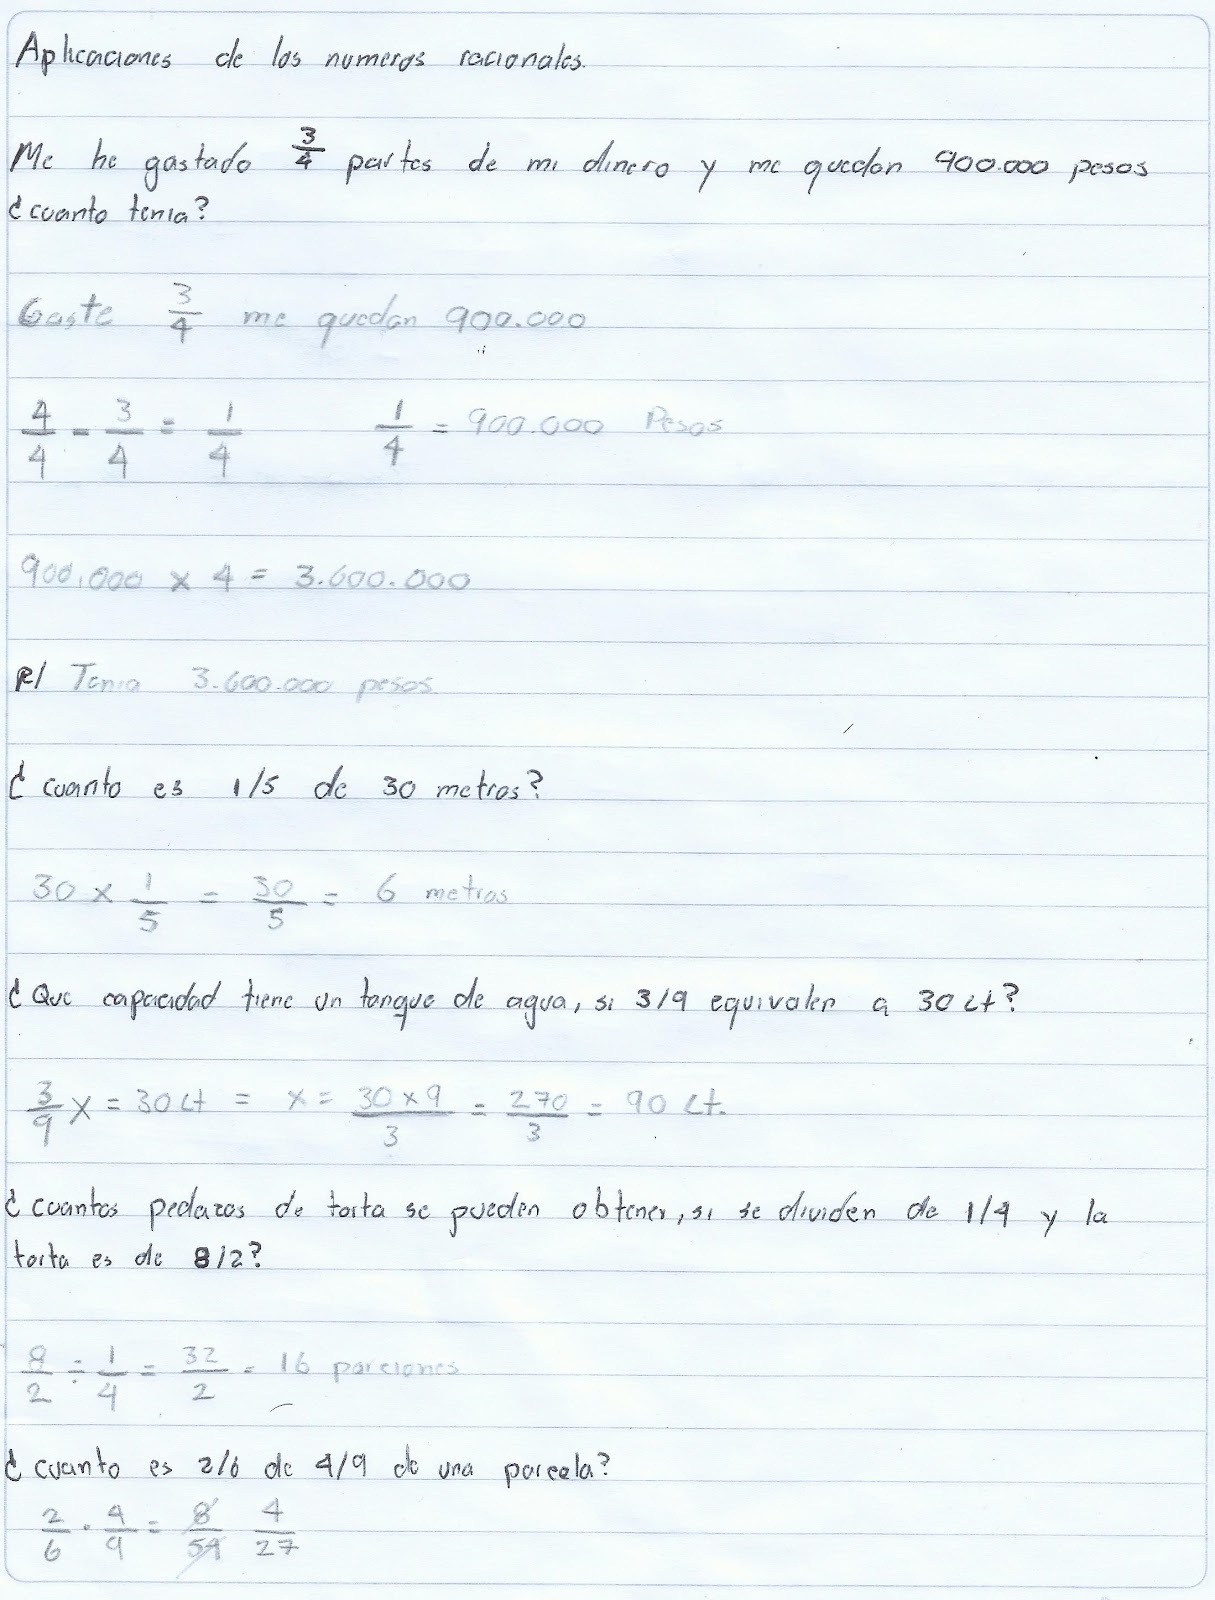 Aplicaciones de los numeros racionales.
Me he gastado 3/4 partes de mi dinero y me quedan 900.000 pesos
¿cuanto tenia?
Gaste 3/4 me quedan 900.000
4/4 - 3/4 = 1/4 1/4 = 900.000 Pesos
900.000 x 4 = 3.600.000
R/ Tenia 3.600.000 pesos.
¿cuanto es 1/5 de 30 metros?
30 x 1/5 = 30/5 = 6 metros
¿Que capacidad tiene un tanque de agua, si 3/9 equivalen a 30 Lt?
3/9 X = 30 Lt = x = 30 x 9/3 = 270/3 = 90 Lt.
¿cuantos pedazos de torta se pueden obtener, si se dividen de 1/4 y la
torta es de 8/2?
8/2 ÷ 1/4 = 32/2 = 16 porciones
¿cuanto es 2/6 de 4/9 de una parcela?
2/6 · 4/9 = 8/54 4/27